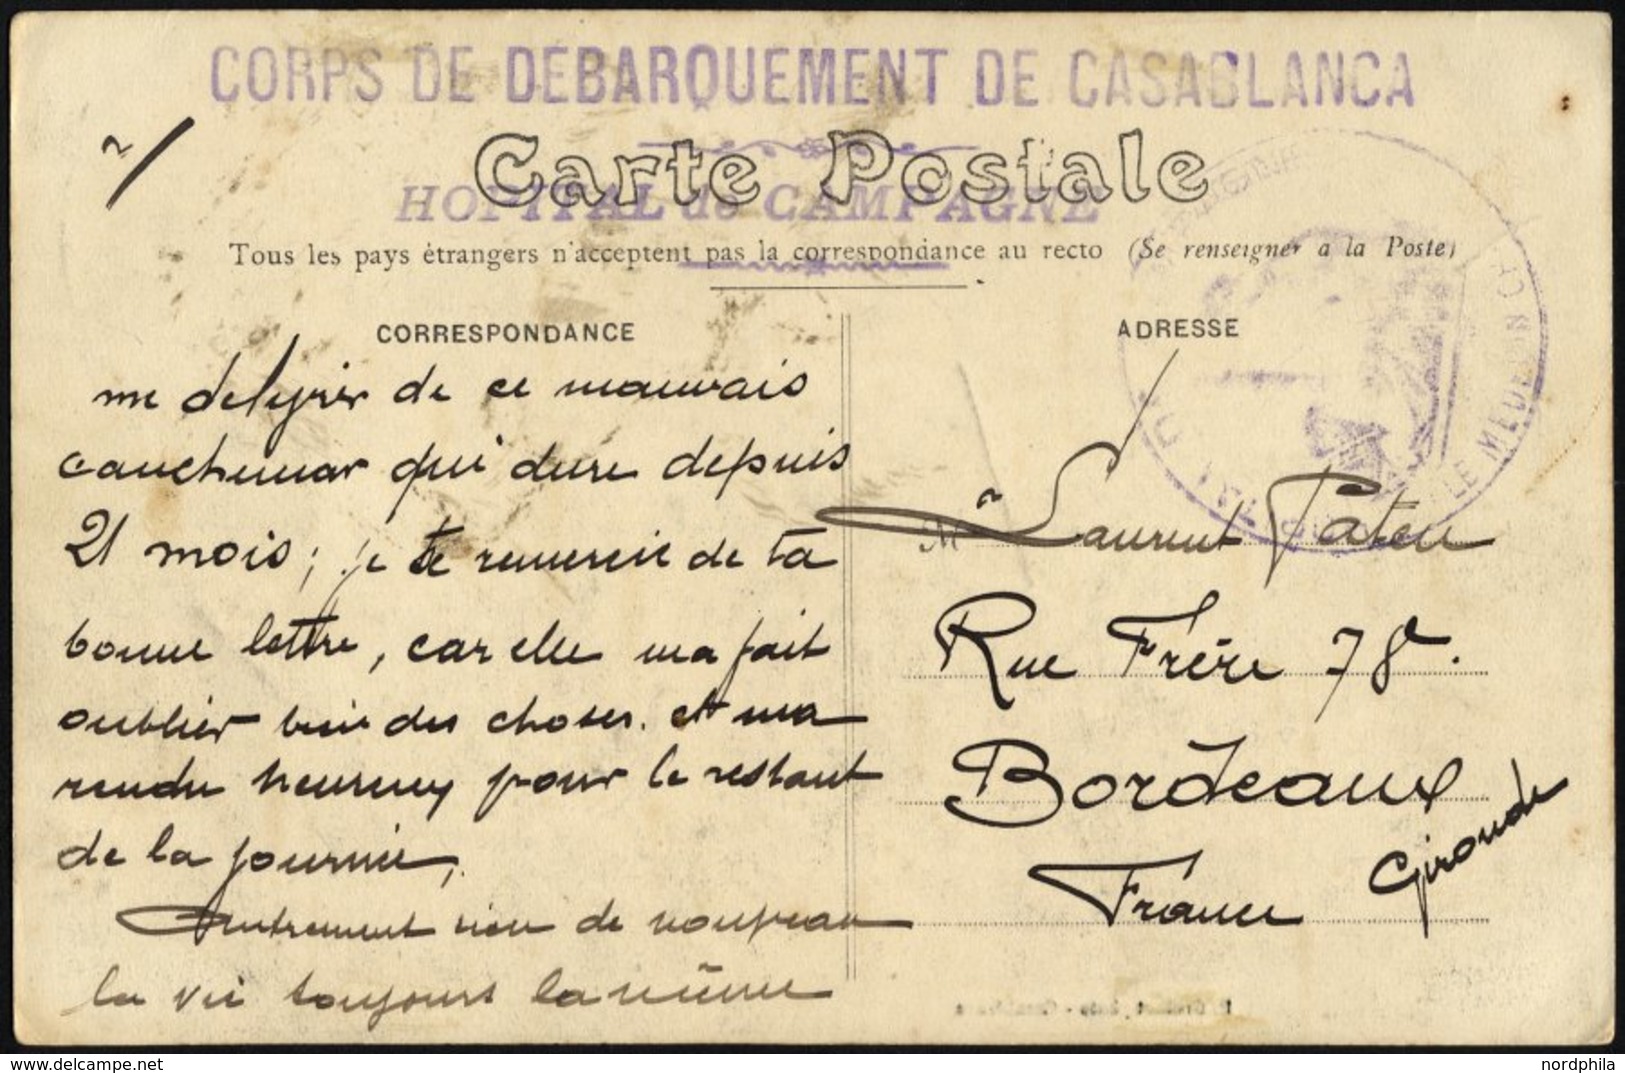 CORPS DE DEBARQUEMENT DE CASABLANCA
2/
Carte Postale
HOPITAL de CAMPAGNE
Tous les pays étrangers n'acceptent pas la correspondance au recto (Se renseigner a la Poste)
CORRESPONDANCE
me de ce mauvais
cauchemar qui dure depuis
21 mois; je te remercie de ta
bonne lettre, car elle m'a fait
oublier bien des choses. et m'a
rendu heureux pour le restant
de la journée,
Autrement rien de nouveau
la vie toujours la même
ADRESSE
LE MEDECIN CH
Mr Laurent
Rue Frère 78.
Bordeaux
Gironde
France
nordphila
www.delcampe.net